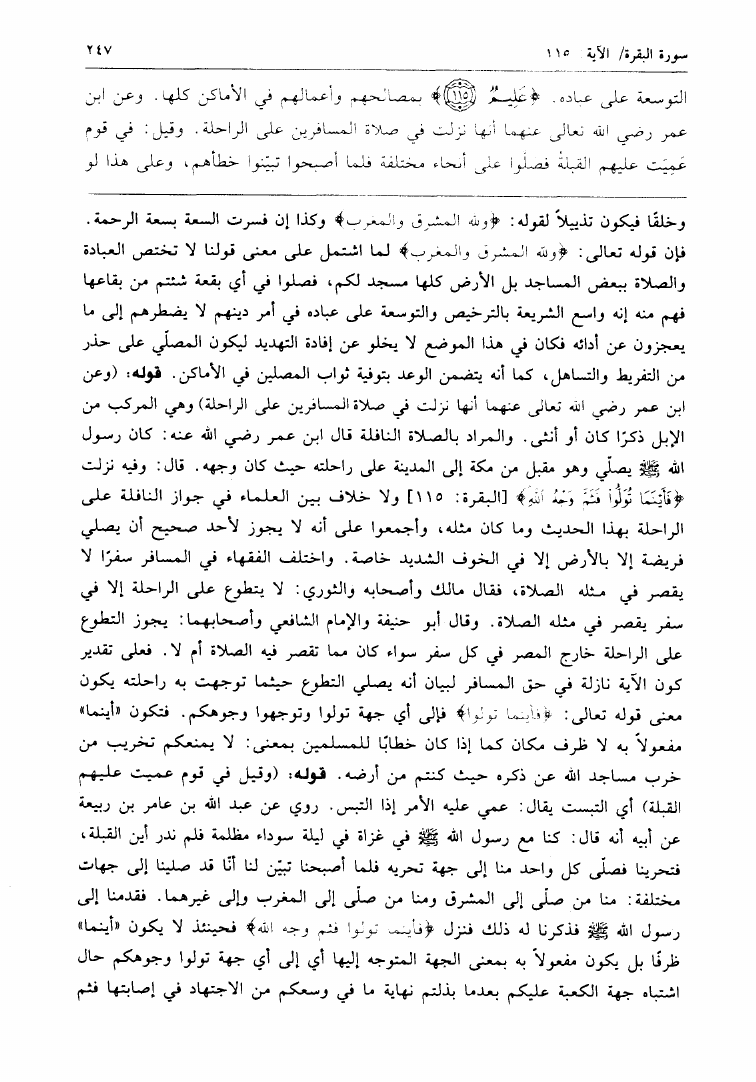 سورة البقرة/ الآية: ١١٥
٢٤٧
التوسعة على عباده. ﴿عَلِيمٌ ﴿١١٥﴾﴾ بمصالحهم وأعمالهم في الأماكن كلها. وعن ابن
عمر رضي الله تعالى عنهما أنها نزلت في صلاة المسافرين على الراحلة. وقيل: في قوم
عَمِيَت عليهم القبلةُ فصلّوا على أنحاء مختلفة فلما أصبحوا تبيّنوا خطأهم، وعلى هذا لو
وخلقًا فيكون تذييلاً لقوله: ﴿ولله المشرق والمغرب﴾ وكذا إن فسرت السعة بسعة الرحمة.
فإن قوله تعالى: ﴿ولله المشرق والمغرب﴾ لما اشتمل على معنى قولنا لا تختص العبادة
والصلاة ببعض المساجد بل الأرض كلها مسجد لكم، فصلوا في أي بقعة شئتم من بقاعها
فهم منه إنه واسع الشريعة بالترخيص والتوسعة على عباده في أمر دينهم لا يضطرهم إلى ما
يعجزون عن أدائه فكان في هذا الموضع لا يخلو عن إفادة التهديد ليكون المصلّي على حذر
من التفريط والتساهل، كما أنه يتضمن الوعد بتوفية ثواب المصلين في الأماكن. قوله: (وعن
ابن عمر رضي الله تعالى عنهما أنها نزلت في صلاة المسافرين على الراحلة) وهي المركب من
الإبل ذكرًا كان أو أنثى. والمراد بالصلاة النافلة قال ابن عمر رضي الله عنه: كان رسول
الله ﷺ يصلّي وهو مقبل من مكة إلى المدينة على راحلته حيث كان وجهه. قال: وفيه نزلت
﴿فَأَيْنَمَا تُوَلُّواْ فَثَمَّ وَجْهُ اللَّهِ﴾ [البقرة: ١١٥] ولا خلاف بين العلماء في جواز النافلة على
الراحلة بهذا الحديث وما كان مثله، وأجمعوا على أنه لا يجوز لأحد صحيح أن يصلي
فريضة إلا بالأرض إلا في الخوف الشديد خاصة. واختلف الفقهاء في المسافر سفرًا لا
يقصر في مثله الصلاة، فقال مالك وأصحابه والثوري: لا يتطوع على الراحلة إلا في
سفر يقصر في مثله الصلاة. وقال أبو حنيفة والإمام الشافعي وأصحابهما: يجوز التطوع
على الراحلة خارج المصر في كل سفر سواء كان مما تقصر فيه الصلاة أم لا. فعلى تقدير
كون الآية نازلة في حق المسافر لبيان أنه يصلي التطوع حيثما توجهت به راحلته يكون
معنى قوله تعالى: ﴿فأينما تولوا﴾ فإلى أي جهة تولوا وتوجهوا وجوهكم. فتكون «أينما»
مفعولاً به لا ظرف مكان كما إذا كان خطابًا للمسلمين بمعنى: لا يمنعكم تخريب من
خرب مساجد الله عن ذكره حيث كنتم من أرضه. قوله: (وقيل في قوم عميت عليهم
القبلة) أي التبست يقال: عمي عليه الأمر إذا التبس. روي عن عبد الله بن عامر بن ربيعة
عن أبيه أنه قال: كنا مع رسول الله ﷺ في غزاة في ليلة سوداء مظلمة فلم ندر أين القبلة،
فتحرينا فصلّى كل واحد منا إلى جهة تحريه فلما أصبحنا تبيّن لنا أنّا قد صلينا إلى جهات
مختلفة: منا من صلّى إلى المشرق ومنا من صلّى إلى المغرب وإلى غيرهما. فقدمنا إلى
رسول الله ﷺ فذكرنا له ذلك فنزل ﴿فأينما تولوا فثم وجه الله﴾ فحينئذ لا يكون «أينما»
ظرفًا بل يكون مفعولاً به بمعنى الجهة المتوجه إليها أي إلى أي جهة تولوا وجوهكم حال
اشتباه جهة الكعبة عليكم بعدما بذلتم نهاية ما في وسعكم من الاجتهاد في إصابتها فثم